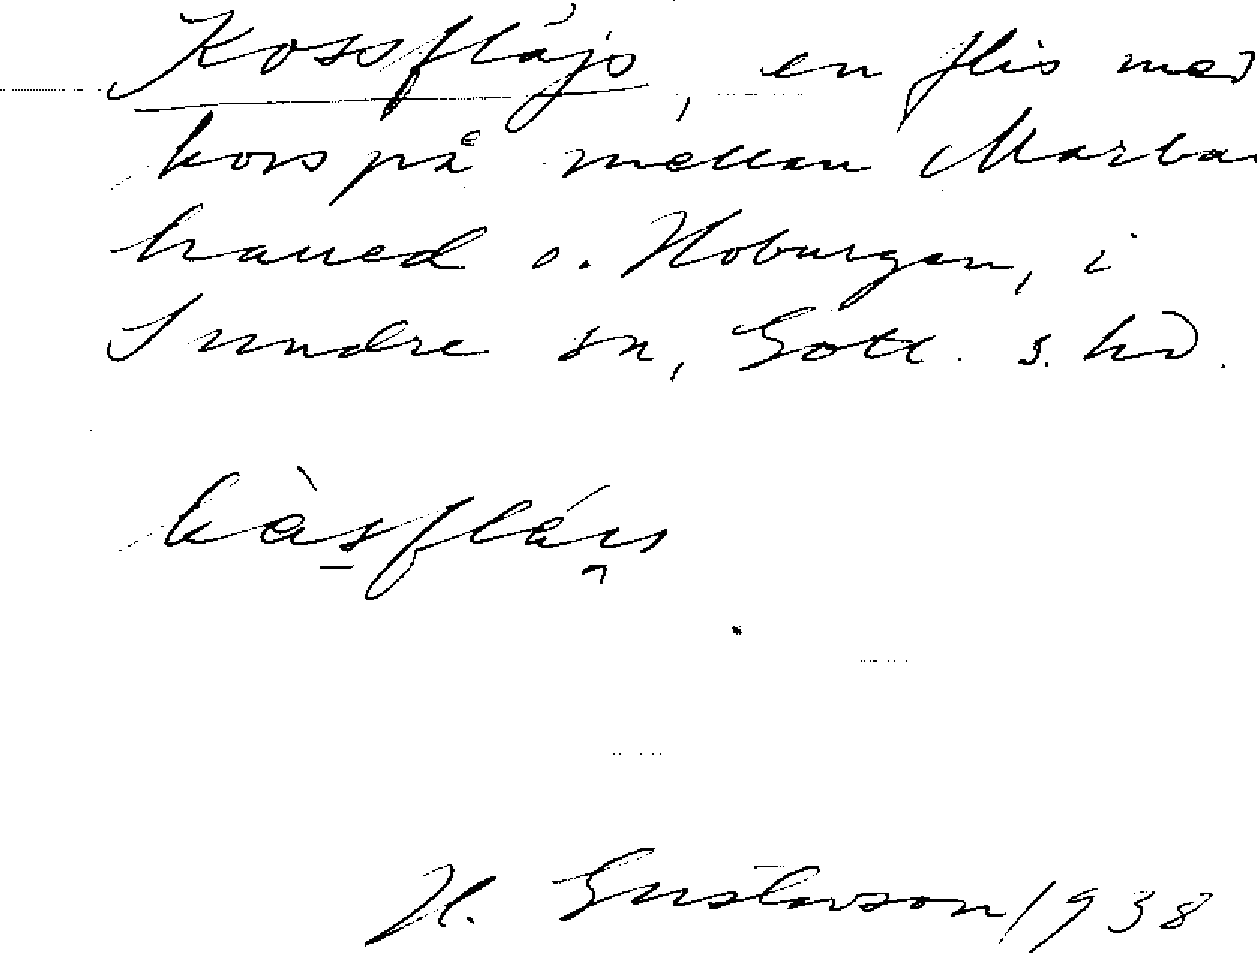 Kossflájs, en flis med
kors på mellan Marbar
haued o. Hoburgen, i
Sundre sn, Gotl. s. hd.
kàsfláis
H. Gustavson 1938